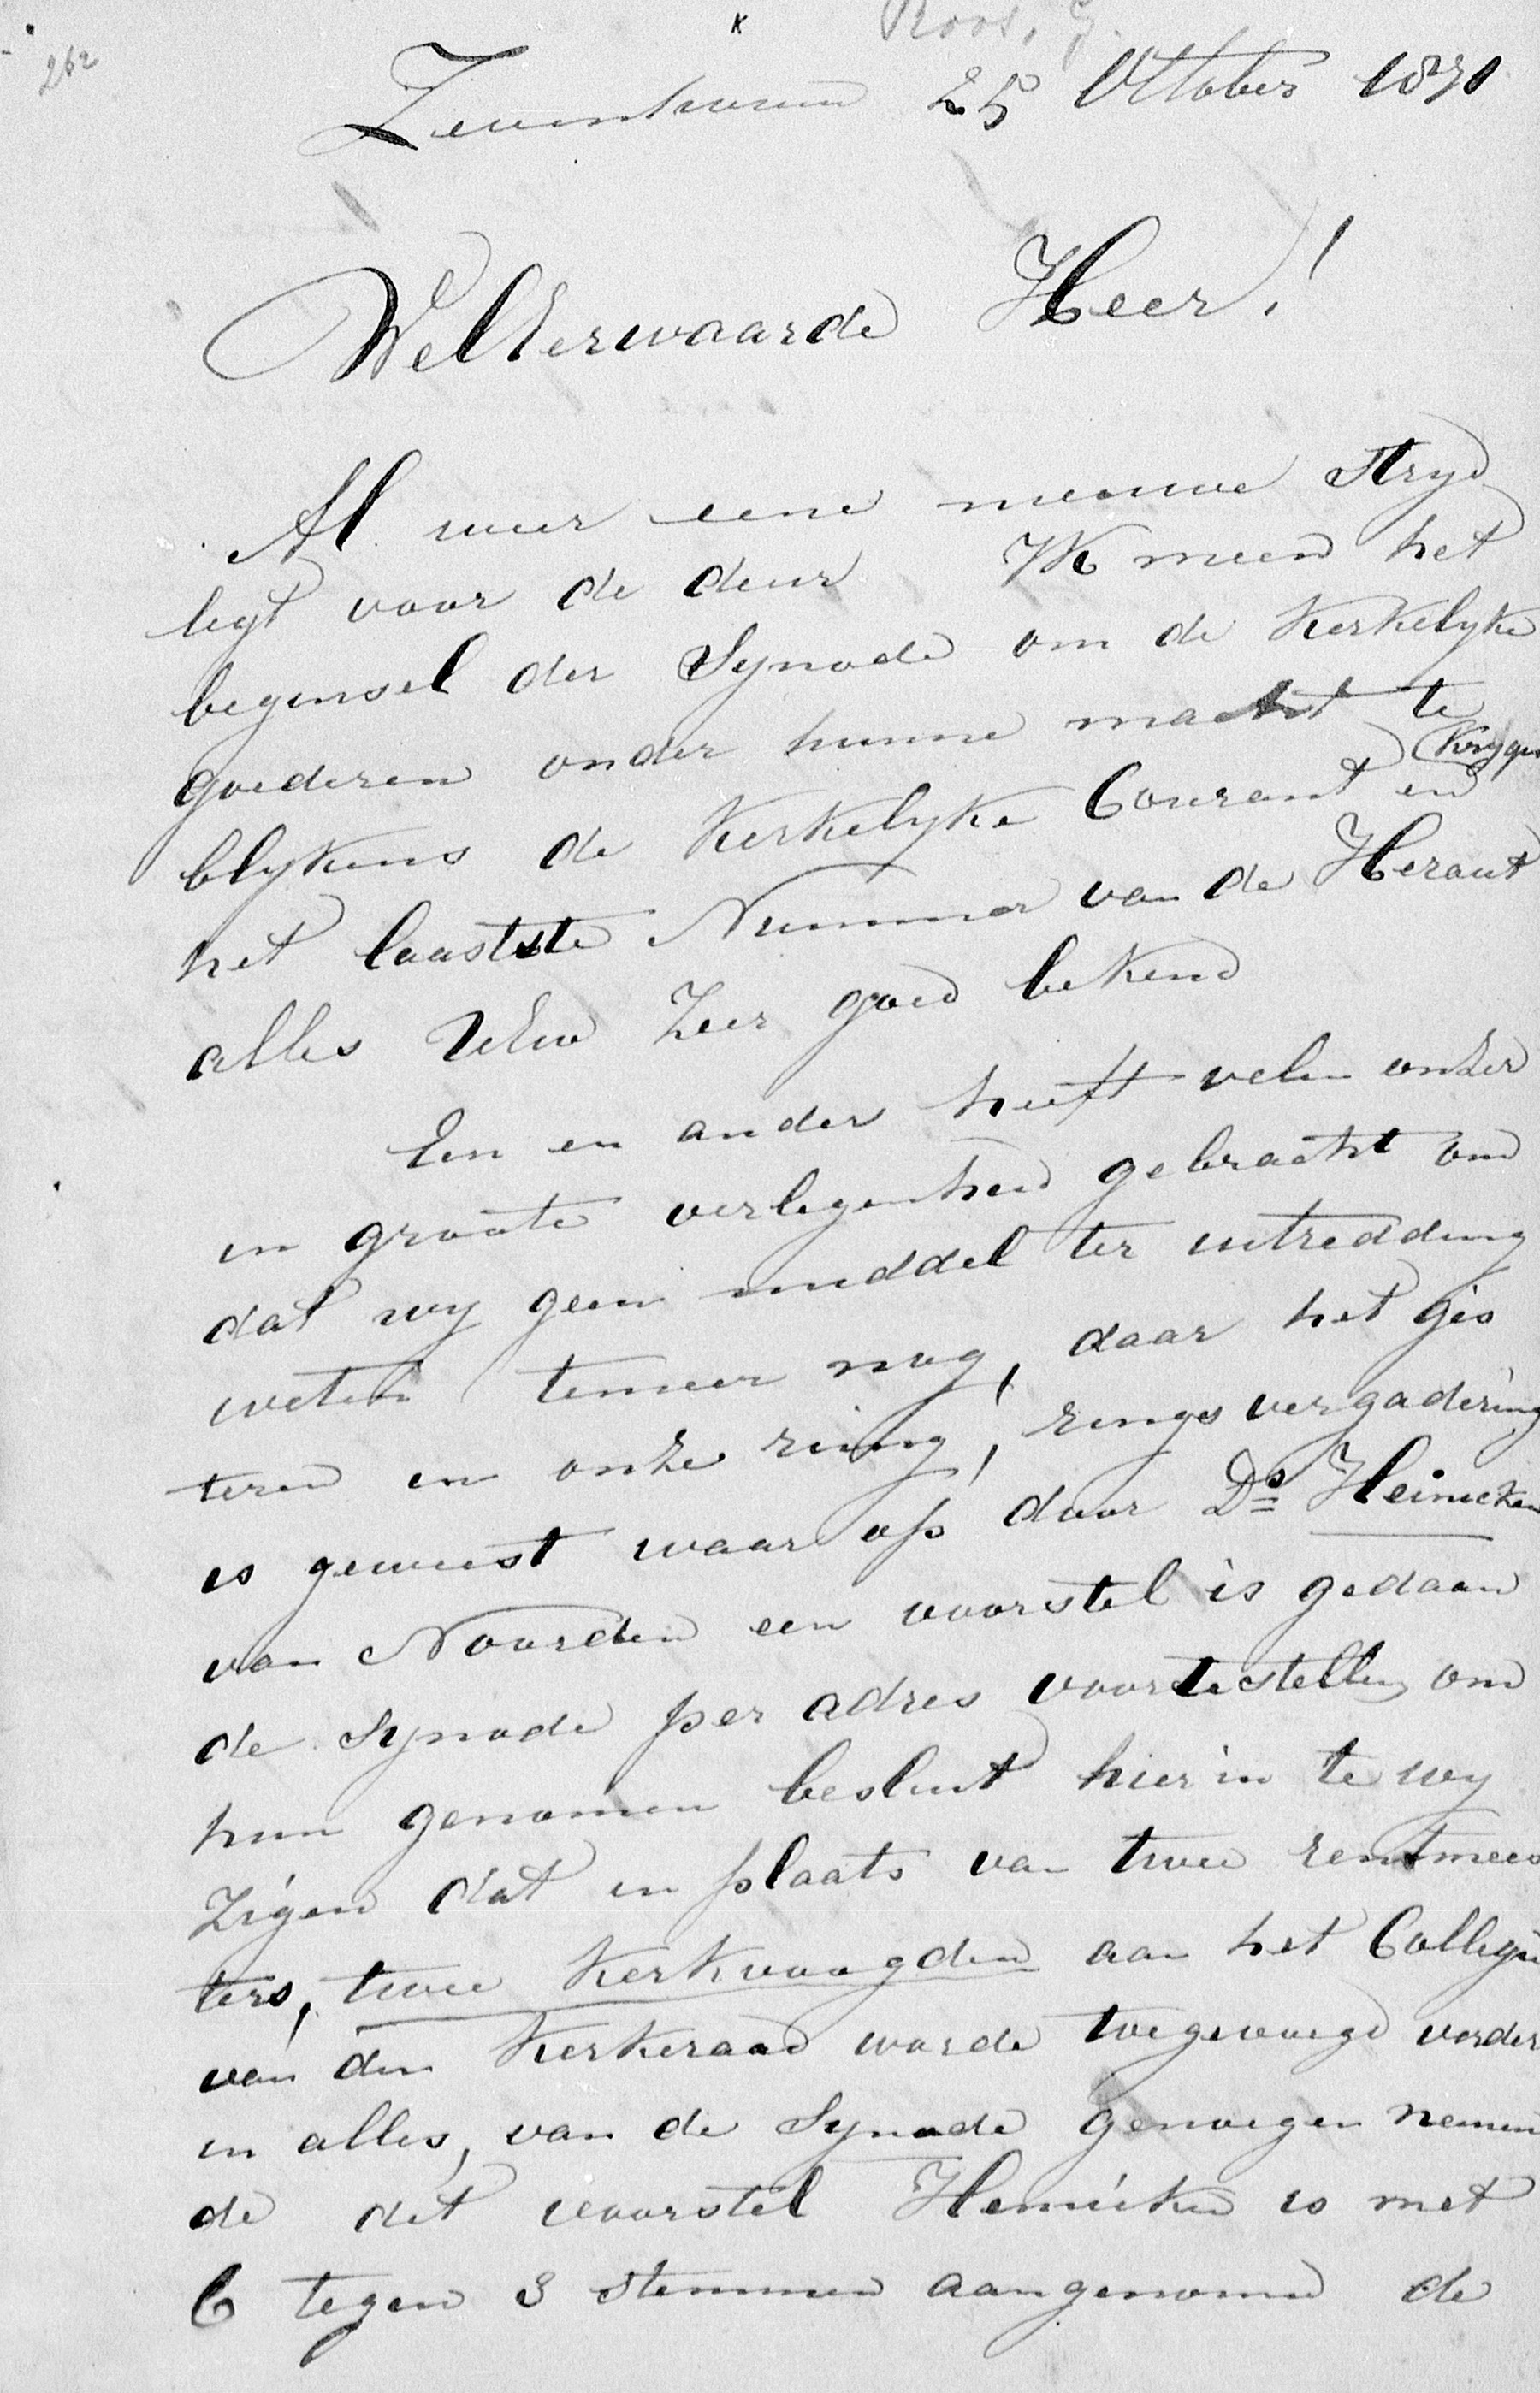 262
Roos, G.
Zevenhoven 25 October 1870
WelEerwaarde Heer!
Al weer eene nieuwe stryd
legt voor de deur Ik meen het
beginsel der Synode om de Kerkelyke
goederen onder hunne macht te
Krygen
blykens de Kerkelyke Courant en
het laastste Nummer van de Heraut
alles UEw Zeer goed bekend
Een en ander heeft velen onzer
in groote verlegenheid gebracht om
dat wy geen middel ter uitredding
weten temeer nog, daar het gis
teren in onze ring, rings vergadering
is geweest waar op door Ds Heinicken
van Noorden een voorstel is gedaan
de Synode per adres voortestellen om
hun genomen besluit hierin te wy
zigen dat in plaats van twee rentmees
ters, twee Kerkvoogden aan het Collegie
van den Kerkeraad worde toegevoegd verder
in alles, van de Synode genoegen nemen
de dit voorstel Heinicken is met
6 tegen 3 stemmen aangenomen de